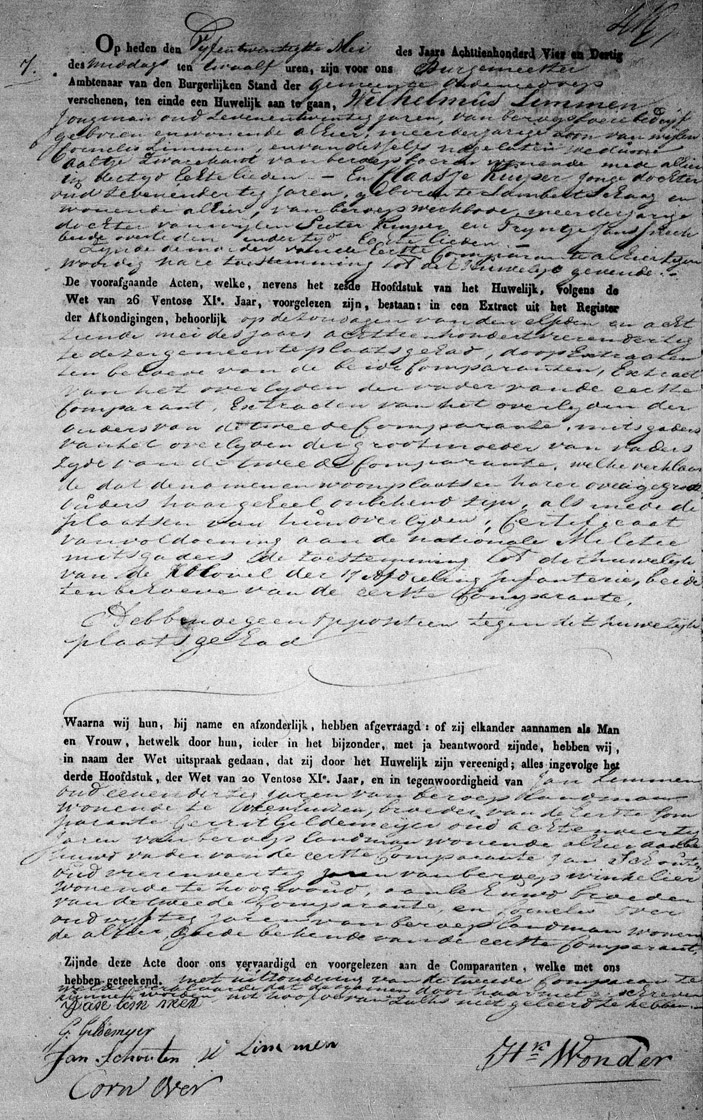 7.
Op heden den Vyfentwintigste Mei des Jaars Achttienhonderd Vier en Dertig
des middags ten twaalf uren, zijn voor ons Burgemeester
Ambtenaar van den Burgerlijken Stand der gemeente
verschenen, ten einde een Huwelijk aan te gaan, Wilhelmus Limmen
Jongman oud Zevenentwintig jaren, van beroep
geboren en wonende alhier, meerderjarige zoon van wijlen
Cornelis Limmen, en van deszelfs nagelaten weduwe
Zwaeshardt van beroep wonende mede alhier
in dertyd Echtelieden. – En Klaasje Kuyper jonge dochter
oud Zevenendertig jaren, geboren te Lambertschaag en
wonende alhier, van beroep werkbode, meerderjarige
dochter van wylen Pieter Kuyper en Tryntje Jans
beide overleden, in der tyd Echtelieden. –
Zynde de moeder van de Eerste Comparant alhier tegen
woordig hare toestemming tot dit Huwelyk gevende. –
De voorafgaande Acten, welke, nevens het zesde Hoofdstuk van het Huwelijk, volgens de
Wet van 26 Ventose XIe. Jaar, voorgelezen zijn, bestaan: in een Extract uit het Register
der Afkondigingen, behoorlijk op de zondagen van den elfden en acht
tiende mei des jaars achttienhondert vierendertig
te dezer gemeente plaats gehad, doop Extracten
ten behoeve van de beide Comparanten, Extract
van het overlyden der vader van de eerste
Comparant, Extracten van het overlyden der
ouders van de tweede Comparante, mitsgaders
van het overlyden der grootmoeder van vaders
zyde van de tweede Comparante, welke verklaar
de dat de namen en woonplaatsen harer overige groot
ouders haar geheel onbekend zyn, als mede de
plaatsen van hun overlyden, Certificaat
van voldoening aan de nationale Militie
mitsgaders de toestemming tot dit huwelyk
van de Kolonel der 17 Afdeeling Infanterie, beide
ten behoeve van de eerste Comparante,
Hebbende geen oppositien tegen dit huwelyk
plaats gehad
Waarna wij hun, bij name en afzonderlijk, hebben afgevraagd: of zij elkander aannamen als Man
en Vrouw, hetwelk door hun, ieder in het bijzonder, met ja beantwoord zijnde, hebben wij,
in naam der Wet uitspraak gedaan, dat zij door het Huwelijk zijn vereenigd; alles ingevolge het
derde Hoofdstuk, der Wet van 20 Ventose XIe. Jaar, en in tegenwoordigheid van Jan Limmen
oud eenendertig jaren van beroep landman
wonende te broeder van de Eerste Com
parante Gerrit Gildemeyer oud achtenveertig
jaren van beroep landman wonende alhier aanbe
huwd vader van de eerste Comparante Jan Schouten
oud vierenveertig jaren van beroep winkelier
wonende te Hoogwoud, aanbehuwd broeder
van de tweede Comparante, en Cornelis Over
oud vyftig jaren van beroep landman wonen
de alhier, goede bekende van de eerste Comparant.
Zijnde deze Acte door ons vervaardigd en voorgelezen aan de Comparanten, welke met ons
hebben geteekend. met uitzondering van de tweede Comparante
welke verklaarde dat de namen door haar niet geschreven
kunnen worden, uit hoofde van zulks niet geleerd te hebben
Jan Lemmen
G Gildemeyer
Jan Schouten W Limmen
Hk Wonder
Corn Over